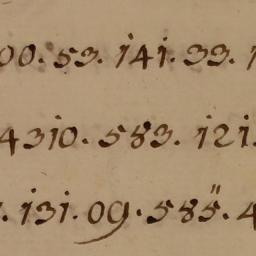 00. 53. 141. 33. 1
4310. 583. 121.
. 131. 09. 585. 4